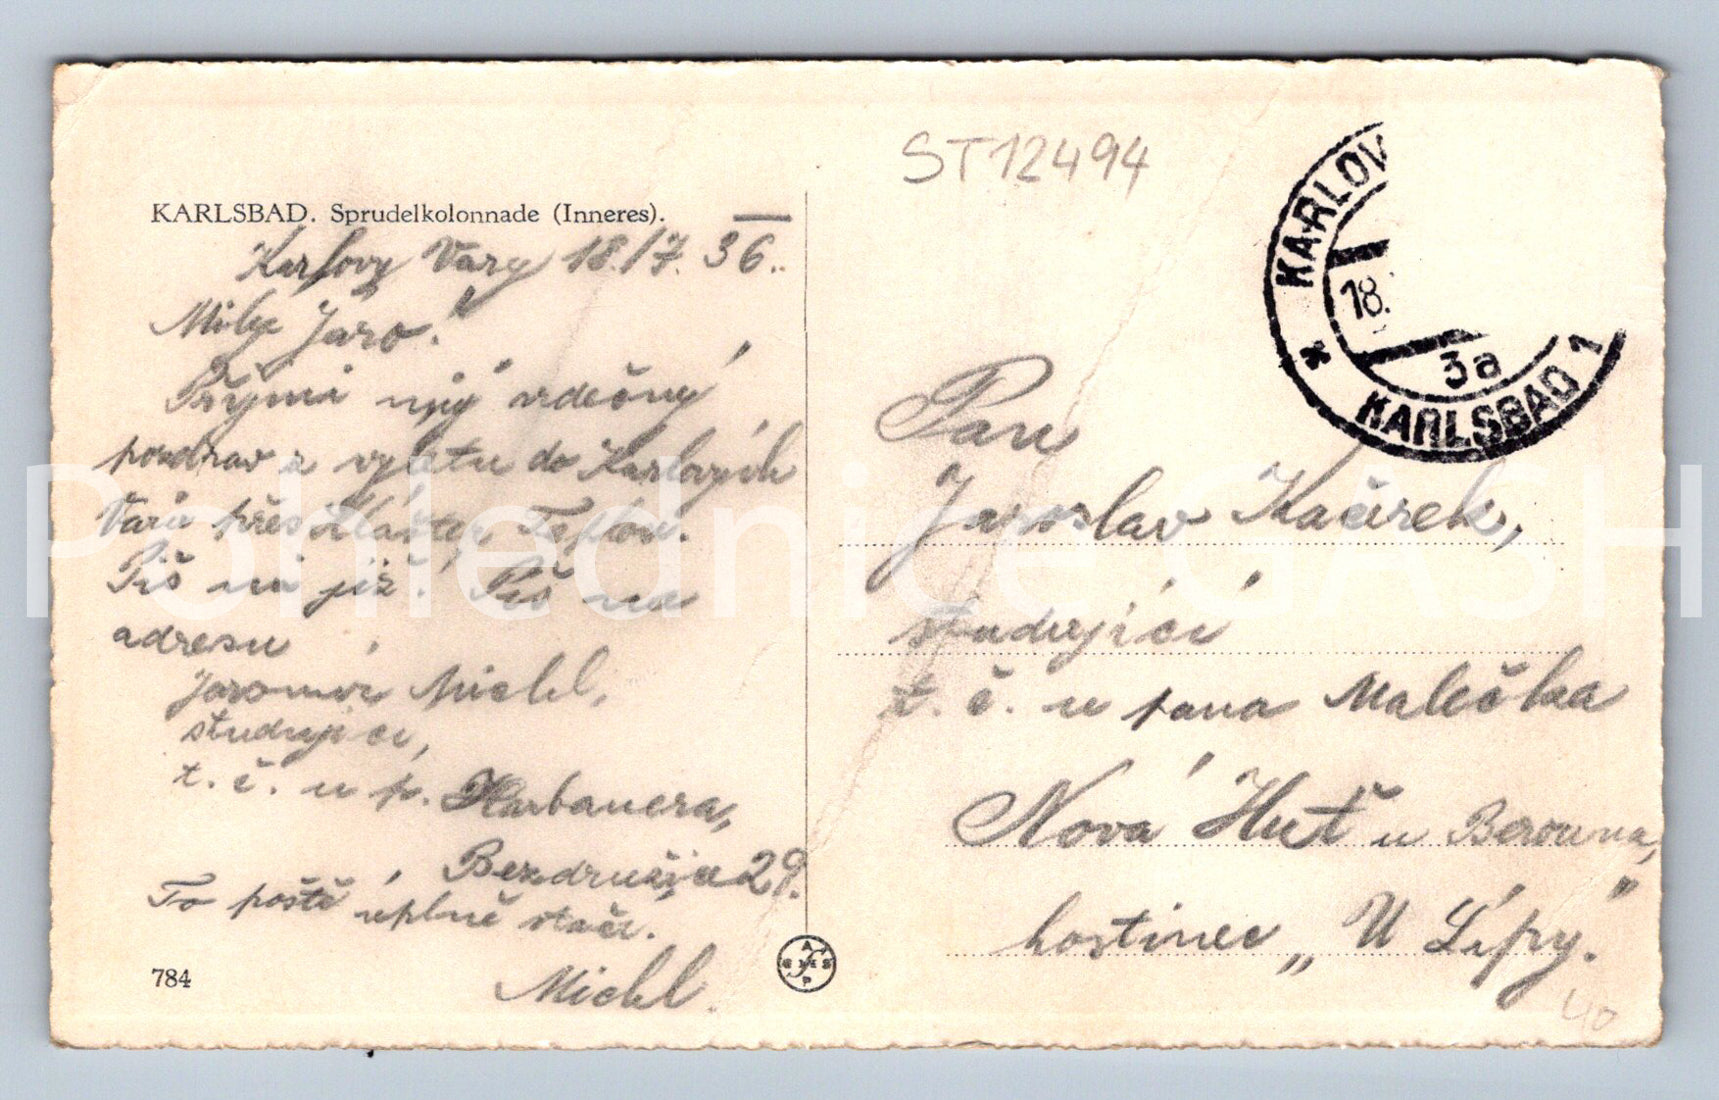 ST12494
KARLOV
18.
3a
* KARLSBAD 1
KARLSBAD. Sprudelkolonnade (Inneres).
Karlovy Vary 18./7. 36.
Milý Jaro!
Přijmi můj srdečný
pozdrav z výletu do Karlových
Varů přes klášter Teplou.
Piš mi již! Piš na
adresu
Jaromír Michl,
studující,
t. č. u p. Harbauera,
Bezdružice 29.
To poště úplně stačí.
Michl.
784
Pan
Jaroslav Kačírek,
studující
t. č. u pana Malečka
Nová Huť u Berouna,
hostinec „U Lípy."
40
Pohlednice GASH